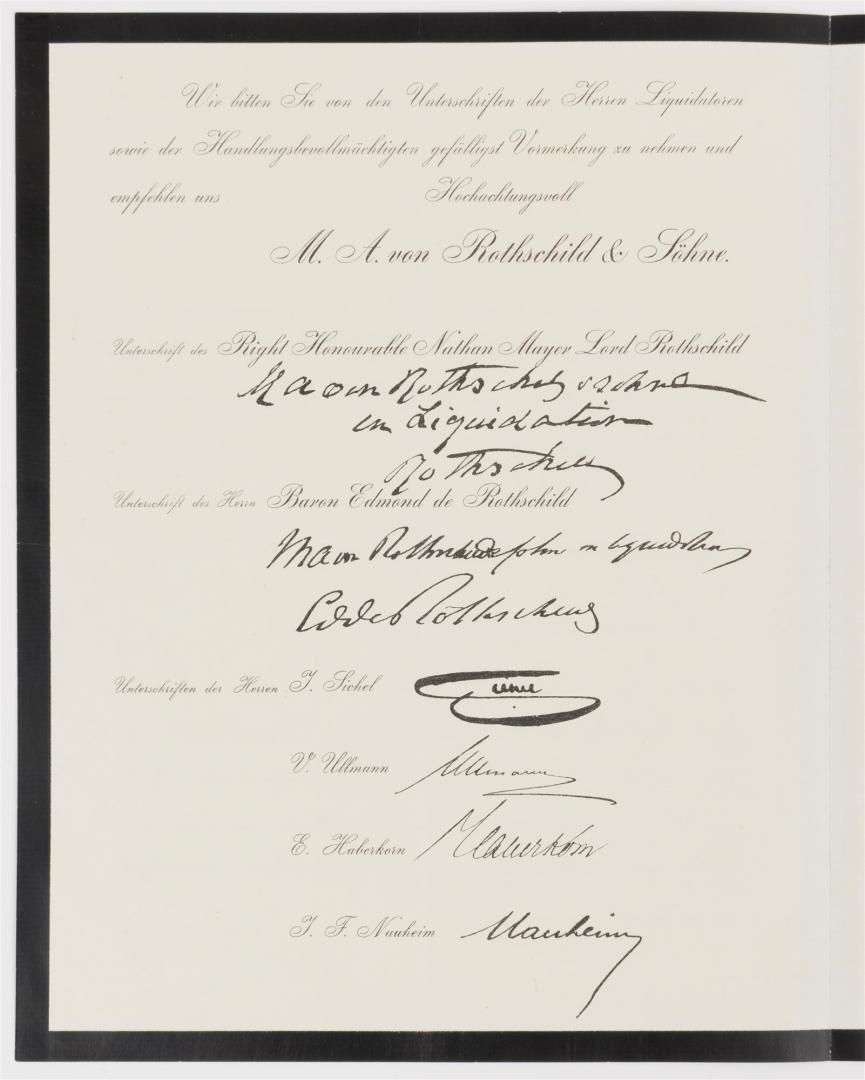 Wir bitten Sie von den Unterschriften der Herren Liquidatoren
sowie der Handlungsbevollmächtigten gefälligst Vormerkung zu nehmen und
empfehlen uns Hochachtungsvoll
M. A. von Rothschild & Söhne.
Unterschrift des Right Honourable Nathan Mayer Lord Rothschild
M A von Rothschild & Sohne
in Liquidation
Rothschild
Unterschrift des Herrn Baron Edmond de Rothschild
M A von Rothschild & Sohne in Liquidation
Ed de Rothschild
Unterschriften der Herren J. Sichel
V. Ullmann Ullmann
E. Haberkorn Haberkorn
J. F. Nauheim Nauheim